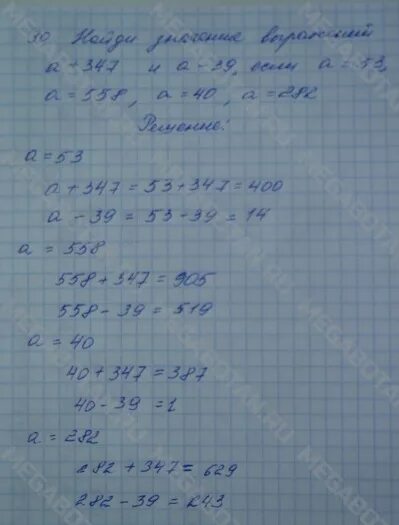 30 Найди значение выражений
а + 347 и а - 39, если а = 53,
а = 558, а = 40, а = 282
Решение:
а = 53
а + 347 = 53 + 347 = 400
а - 39 = 53 - 39 = 14
а = 558
558 + 347 = 905
558 - 39 = 519
а = 40
40 + 347 = 387
40 - 39 = 1
а = 282
282 + 347 = 629
282 - 39 = 243
MEGABOTAN.RU